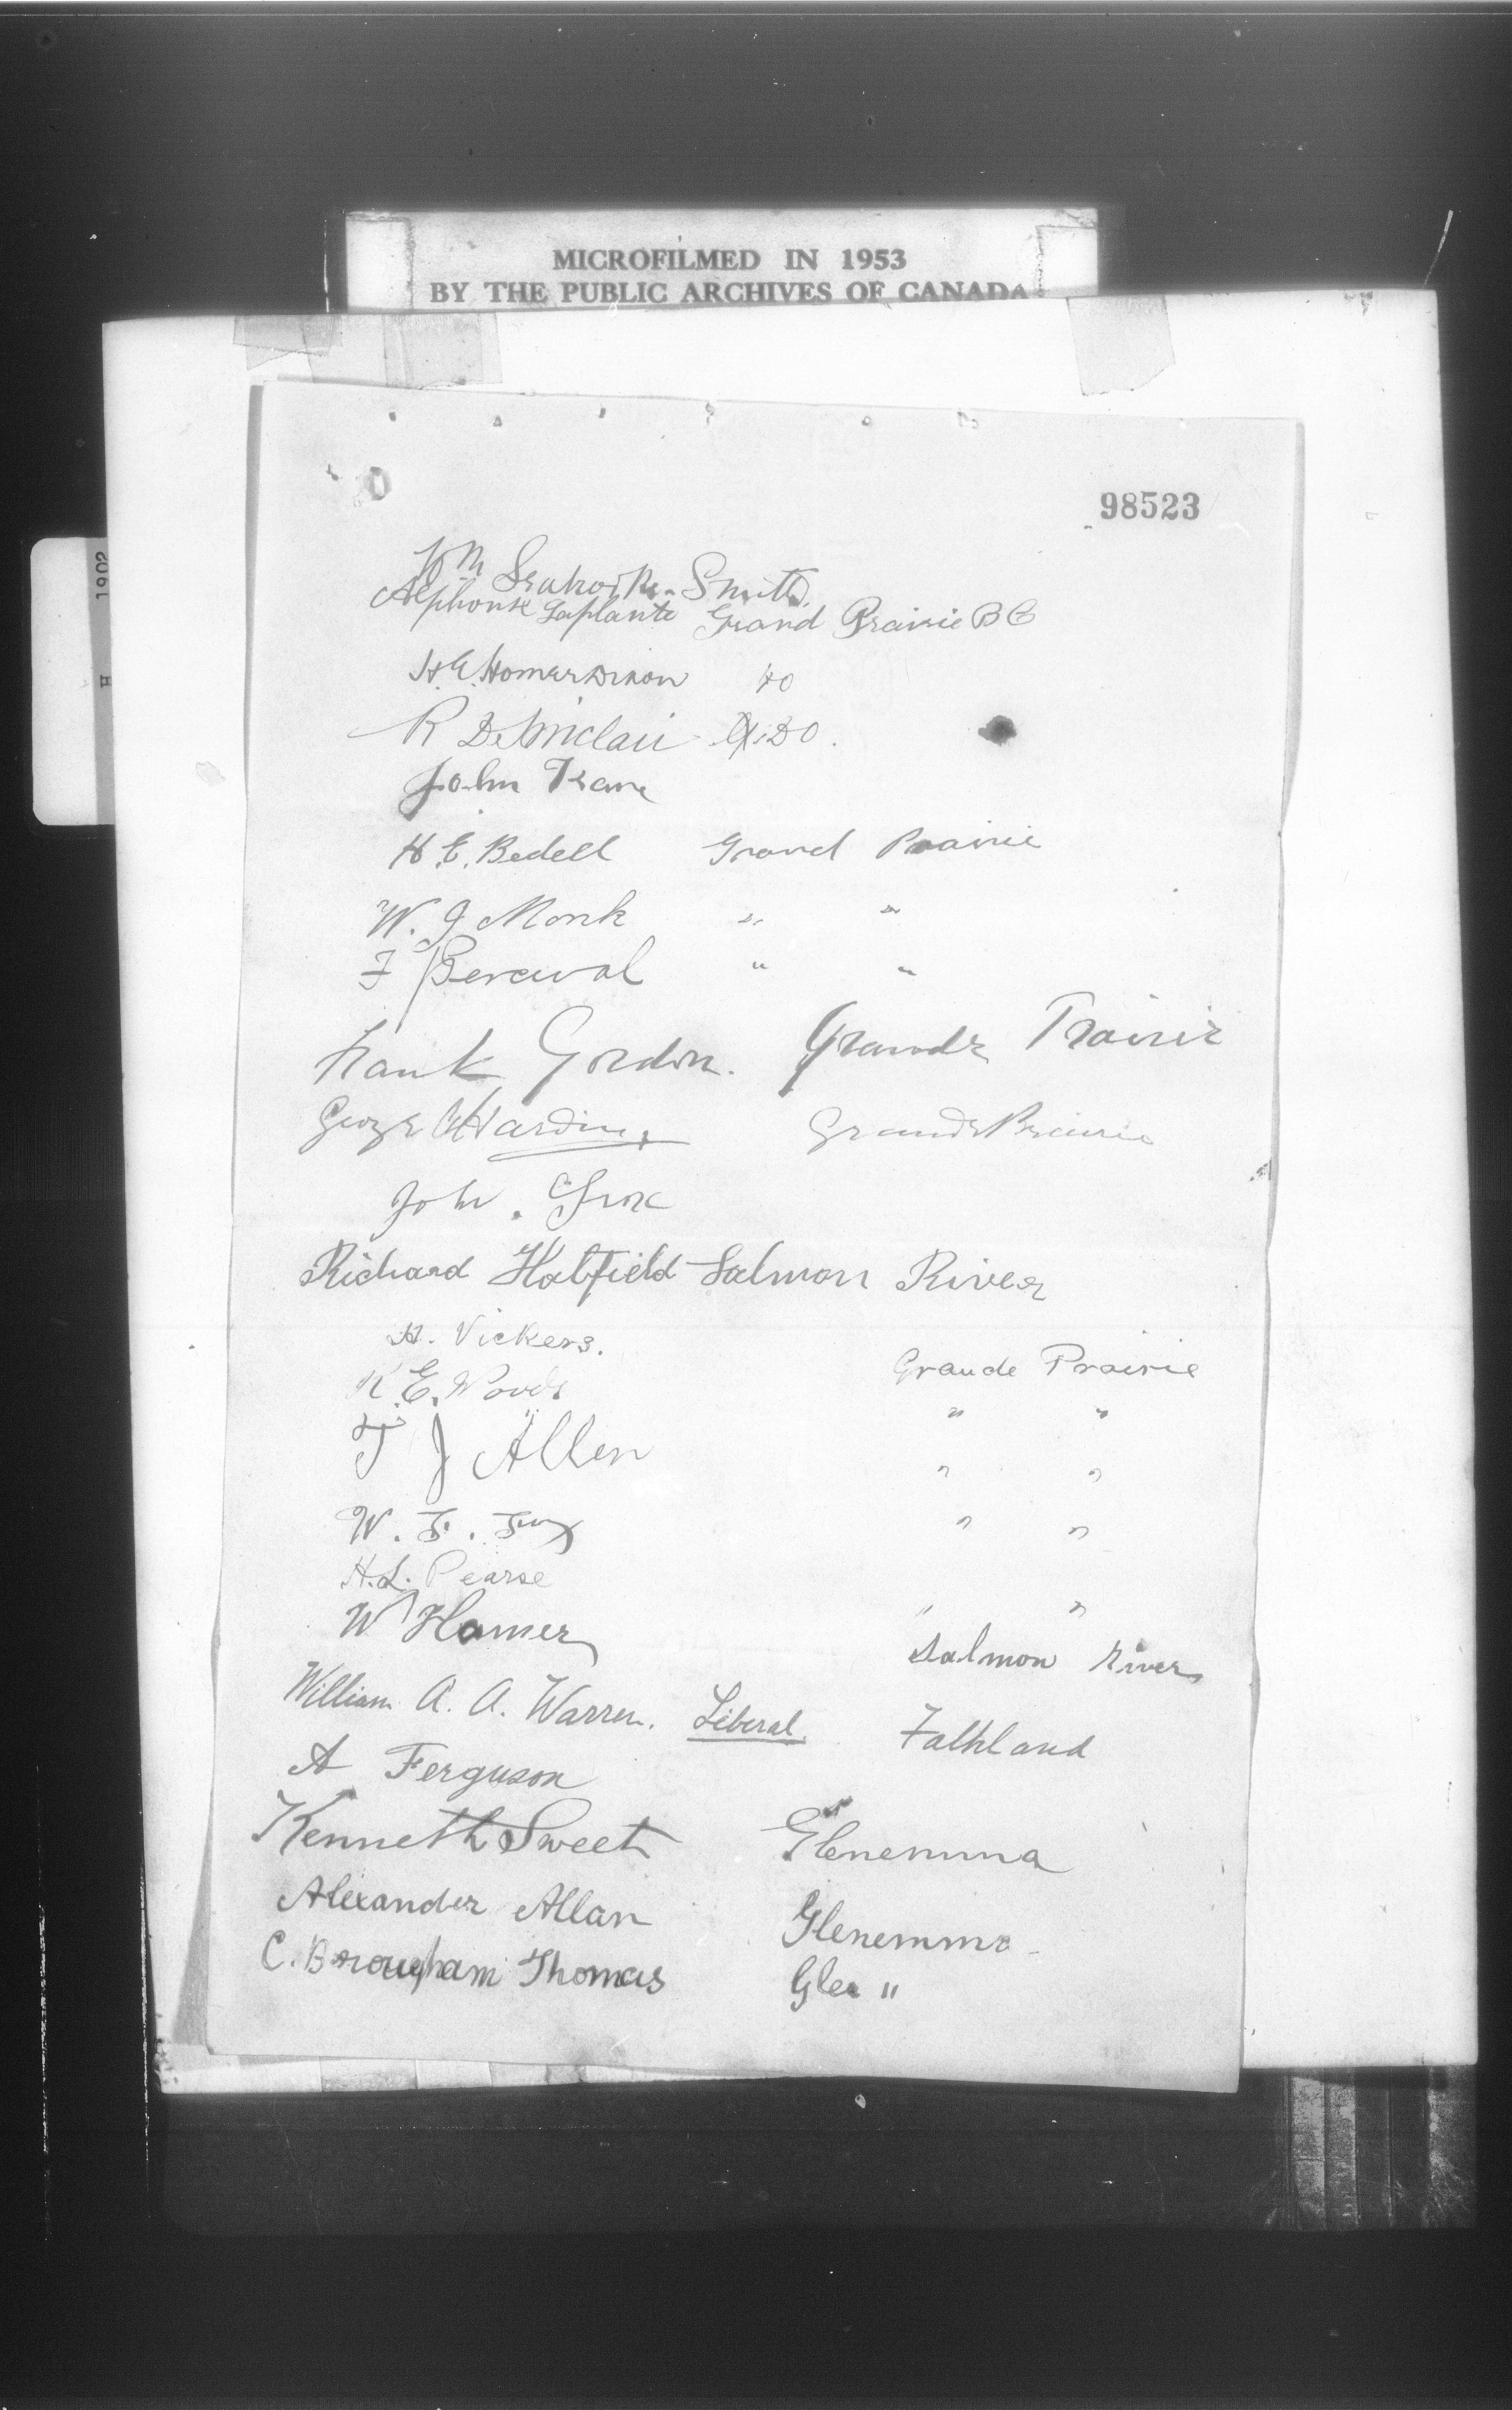 MICROFILMED IN 1953
BY THE PUBLIC ARCHIVES OF CANADA
1902
H
98523
Wm Smith
Alphonse Laplante Grand Prairie B C
H. E. Homer Dixon Do
R D. Sinclair Do.
John
H. E. Bedell Grand Prairie
W. J. Monk " "
F Perceval " "
Frank Gordon. Grande Prairie
George Harding Grande Prairie
John.
Richard Hatfield Salmon River
H. Vickers.
Grande Prairie
K. E. Woods " "
T J Allen " "
W. F. Fox " "
H. L. Pearse " "
W Homer Salmon River
William A. A. Warren. Liberal. Falkland
A Ferguson
Kenneth Sweet Glenemma
Alexander Allan Glenemma
C. Brougham Thomas Glen "